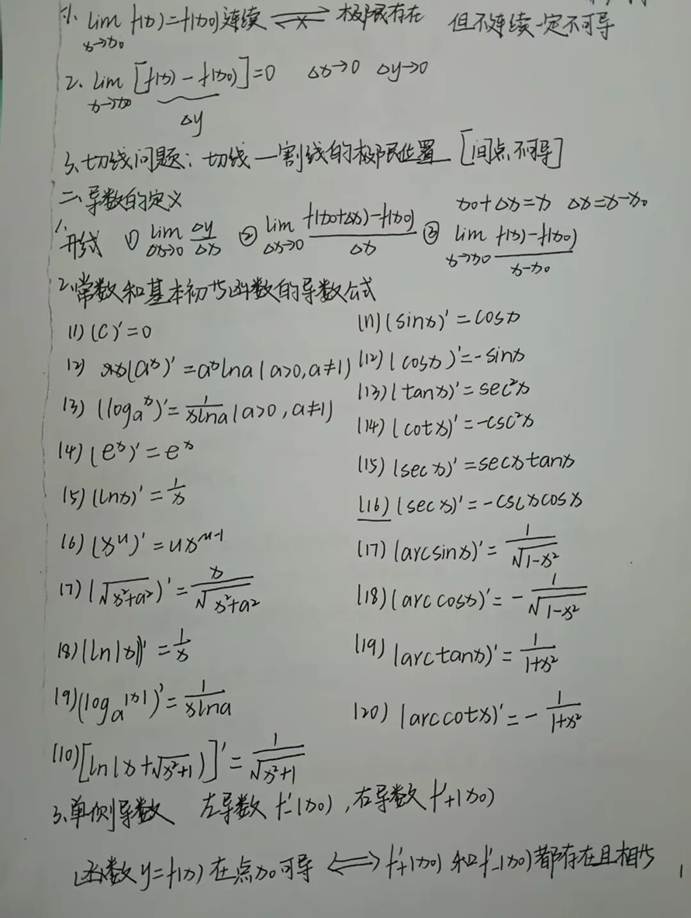 1. lim x→x₀ f(x)=f(x₀)连续 ⇌(×) 极限存在 但不连续一定不可导
2. lim x→x₀ [f(x)-f(x₀)]=0 Δx→0 Δy→0
Δy
3. 切线问题：切线—割线的极限位置 [间点不可导]
二、导数的定义
x₀+Δx=x Δx=x-x₀
1. 形式 ① lim Δx→0 Δy/Δx ② lim Δx→0 (f(x₀+Δx)-f(x₀))/Δx ③ lim x→x₀ (f(x)-f(x₀))/(x-x₀)
2. 常数和基本初等函数的导数公式
(1) (C)'=0
(2) (aˣ)'=aˣlna (a>0, a≠1)
(3) (logₐx)'=1/(xlna) (a>0, a≠1)
(4) (eˣ)'=eˣ
(5) (lnx)'=1/x
(6) (xᵘ)'=uxᵘ⁻¹
(7) (√(x²+a²))'=x/√(x²+a²)
(8) (ln|x|)'=1/x
(9) (logₐ|x|)'=1/(xlna)
(10) [ln(x+√(x²+1))]'=1/√(x²+1)
(11) (sinx)'=cosx
(12) (cosx)'=-sinx
(13) (tanx)'=sec²x
(14) (cotx)'=-csc²x
(15) (secx)'=secxtanx
(16) (secx)'=-cscxcosx
(17) (arcsinx)'=1/√(1-x²)
(18) (arccosx)'=-1/√(1-x²)
(19) (arctanx)'=1/(1+x²)
(20) (arccotx)'=-1/(1+x²)
3. 单侧导数 左导数 f'₋(x₀), 右导数 f'₊(x₀)
函数y=f(x)在点x₀可导 ⟺ f'₊(x₀) 和 f'₋(x₀)都存在且相等